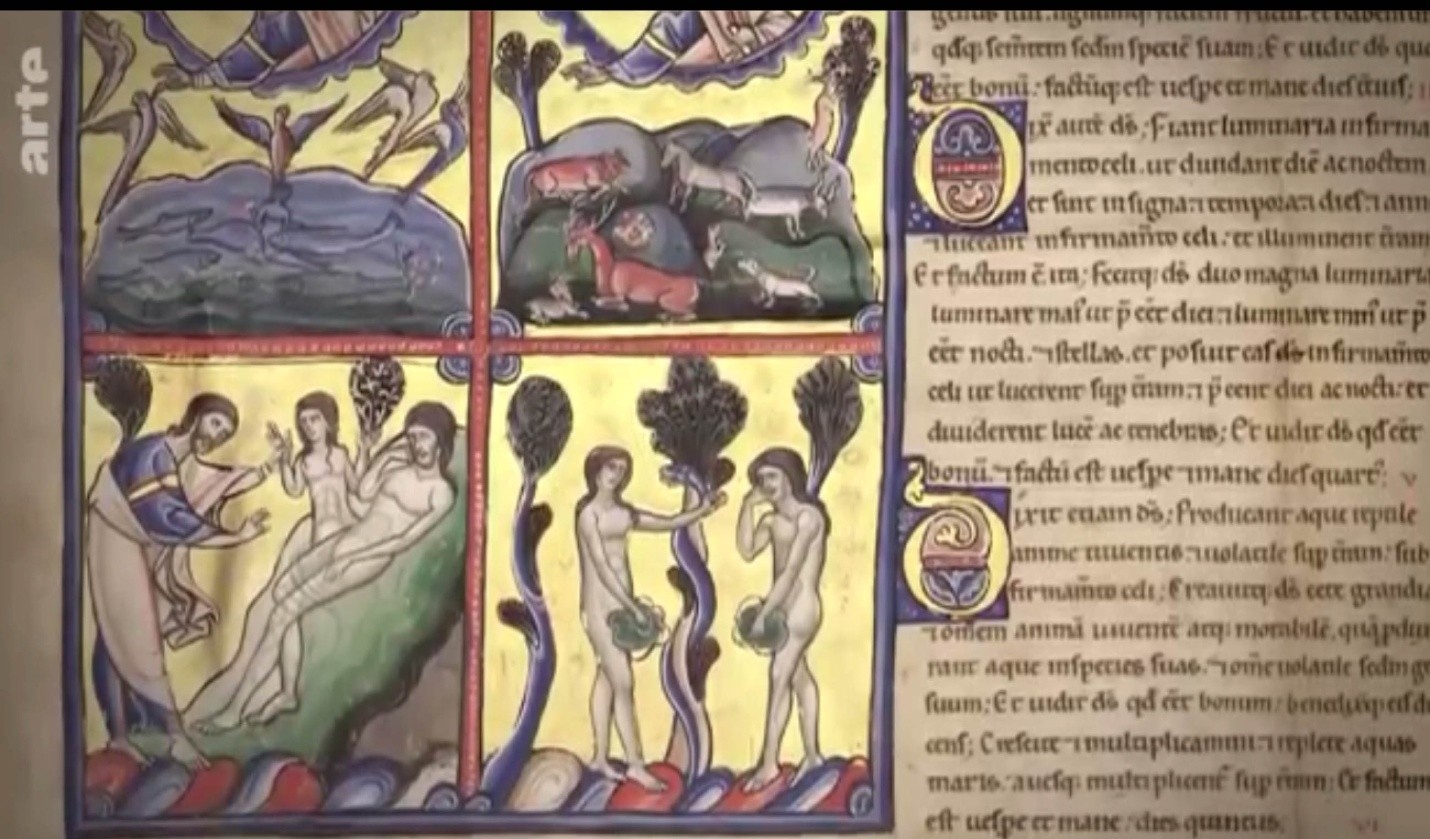 arte
qđq; sem̄tem scđm speciē suam; Et uidit dš quđ
eēt bonū. factūq; est uespe et mane dies t̄cius;
Dix̄ autē dš; Fiant luminaria in firma
mento celi. ut diuidant diē ac noctem
et sint in signa ⁊ tempora ⁊ dies ⁊ ann
⁊ luceant in firmam̄to celi. et illuminent t̄ram
Et factum ē. ita; Fecitq; dš duo magna luminaria
luminare mai᷒ ut p̄ eēt diei ⁊ luminare min᷒ ut p̄
eēt nocti. ⁊ stellas. et posuit eas dš in firmam̄to
celi ut lucerent sup t̄ram; ⁊ p̄ eent diei ac nocti. et
diuiderent lucē ac tenebras; Et uidit dš qđ eēt
bonū. ⁊ factū est uespe ⁊ mane dies quart᷒.
Dixit etiam dš; Producant aque reptile
anime uiuentis ⁊ uolatile sup t̄ram. sub
firmam̄to celi; Creauitq; dš cete grandia
⁊ omem animā uiuentē atq; motabilē, quā pdux
rant aque in species suas. ⁊ om̄e uolatile scđm ge
suum; Et uidit dš qđ eēt bonum. benedixitq; eis di
cens; Crescite ⁊ multiplicamini. ⁊ replete aquas
maris. auesq; multiplicent̄ sup t̄ram; Et factum
est uespe et mane dies quintus;